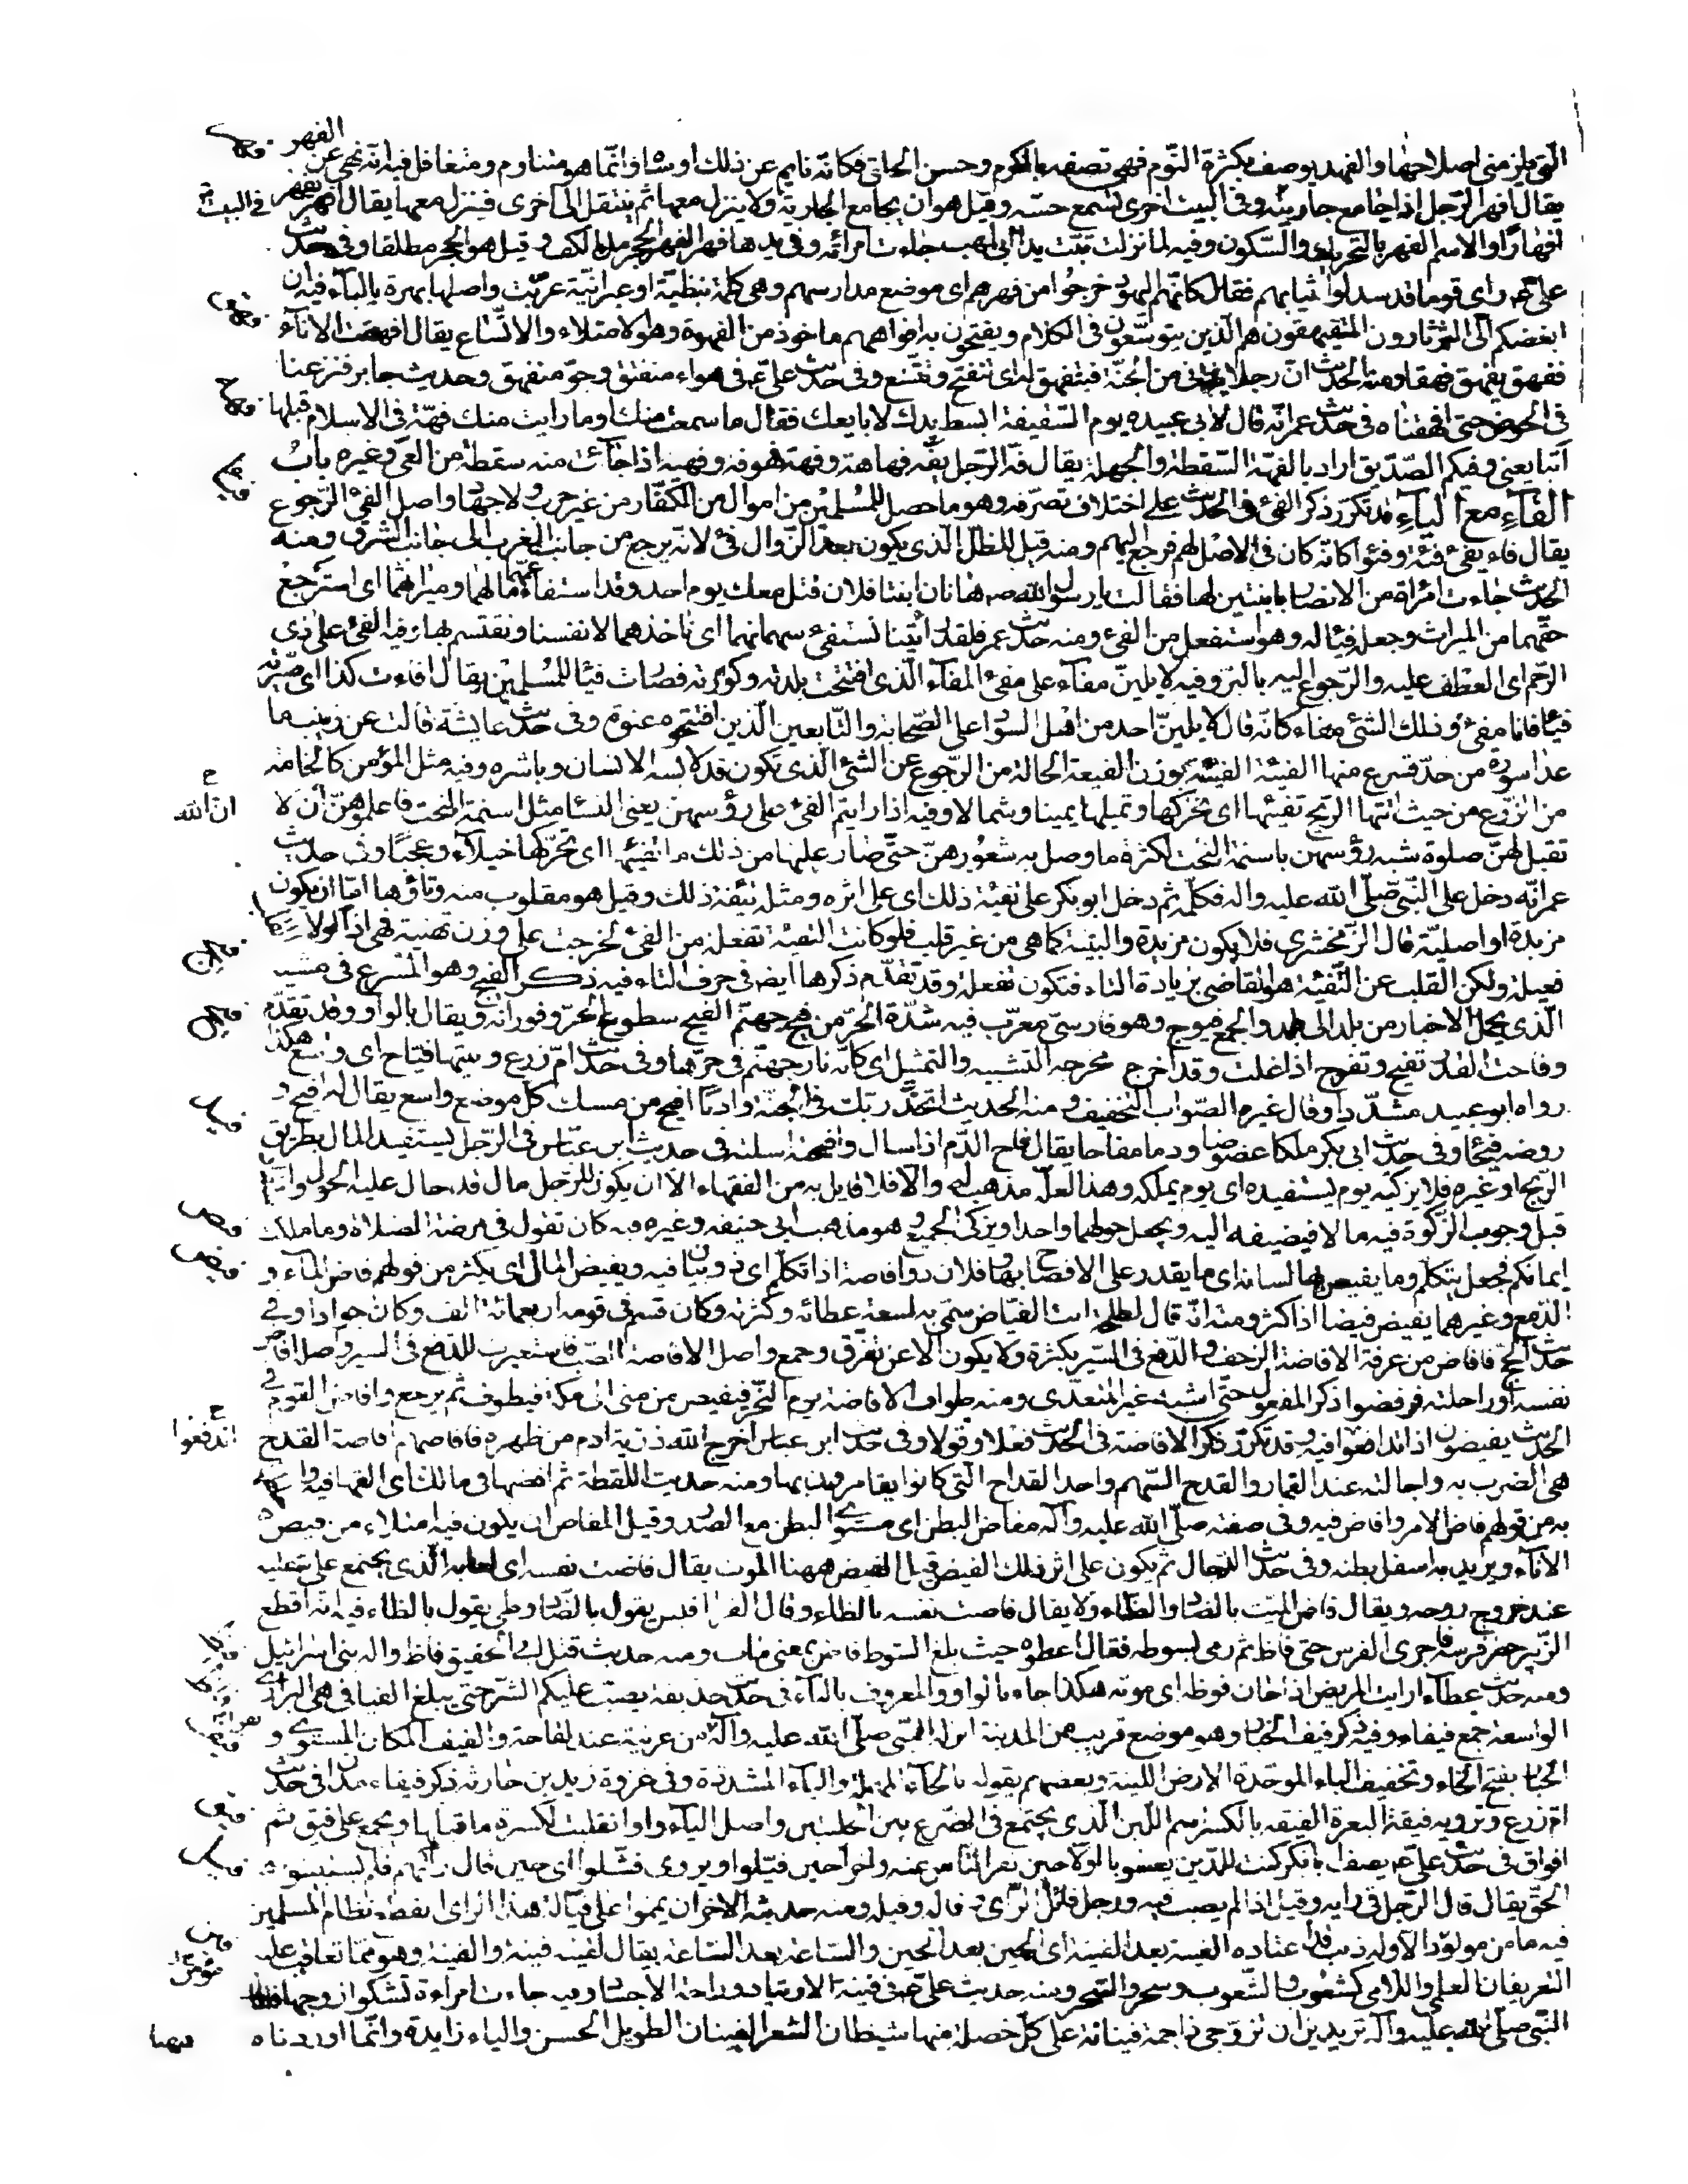 التى يلزمنى اصلاحها والفهد يوصف بكثرة النوم فهى تصفه بالكرم وحسن الخلق فكانه نايم عن ذلك او ساه وانما هو متناوم ومتغافل فيه انه نهى عن الفهر
يقال افهر الرجل اذا جامع جاريته وفى البيت اخرى تسمع حسه وقيل هو ان يجامع الجارية ولا ينزل معها ثم ينتقل الى اخرى فينزل معها يقال افهر يفهر
افهارا والاسم الفهر بالتحريك والسكون وفيه لما نزلت تبت يدا ابى لهب جاءت امراته وفى يدها فهر الفهر الحجر ملء الكف وقيل هو الحجر مطلقا وفى حديث
على ع راى قوما قد سدلوا ثيابهم فقال كانهم اليهود خرجوا من فهرهم اى موضع مدارسهم وهى كلمة نبطية او عبرانية عربت واصلها بهرة بالباء فيه ان
ابغضكم الى الثرثارون المتفيهقون هم الذين يتوسعون فى الكلام ويفتحون به افواههم ماخوذ من الفهق وهو الامتلاء والاتساع يقال افهقت الاناء
ففهق يفهق فهقا ومنه الحديث ان رجلا يدنى من الجنة فتنفهق له اى تنفتح وتتسع وفى حديث على ع فى هواء منفتق وجو منفهق وحديث جابر فنزعنا
فى الحوض حتى افهقناه فى حديث عمر انه قال لابى عبيده يوم السقيفة ابسط يدك لابايعك فقال ما سمعت منك او ما رايت منك فهة فى الاسلام قبلها
اتبايعنى وفيكم الصديق اراد بالفهة السقطة والجهلة يقال فه الرجل يفه فهاهة وفهة فهو فه وفهيه اذا جاءت منه سقطة من العى وغيره باب
الفاء مع الياء قد تكرر ذكر الفئ فى الحديث على اختلاف تصرفه وهو ما حصل للمسلمين من اموال الكفار من غير حرب ولا جهاد واصل الفئ الرجوع
يقال فاء يفئ فئة وفيئوا كانه كان فى الاصل لهم فرجع اليهم ومنه قيل للظل الذى يكون بعد الزوال فئ لانه يرجع من جانب الغرب الى جانب الشرق ومنه
الحديث جاءت امراة من الانصار بابنتين لها فقالت يا رسول الله ص هاتان ابنتا فلان قتل معك يوم احد وقد استفاء عمهما مالهما وميراثهما اى استرجع
حقهما من الميراث وجعله فيئا له وهو استفعل من الفئ ومنه حديث عمر فلقد رايتنا نستفئ سهمانهما اى ناخذهما لانفسنا ونقتسم بها وفيه الفئ على ذى
الرحم اى العطف عليه والرجوع اليه بالبر وفيه لا يلين مفاء على مفئ المفاء الذى افتتحت بلدته وكورته فصارت فيئا للمسلمين يقال افاءت كذا اى صيرته
فيئا فانا مفئ وذلك الشئ مفاء كانه قال لا يلين احد من اهل السواد على الصحابة والتابعين الذين افتتحوه عنوة وفى حديث عايشة قالت عن زينب ما
عدا سورة من حد تسرع منها الفيئة الفيئة بوزن الفيعة الحالة من الرجوع عن الشئ الذى يكون قد لابسه الانسان وباشره وفيه مثل المؤمن كالخامة
من الزرع من حيث اتتها الريح تفيئها اى تحركها وتميلها يمينا وشمالا وفيه اذا رايتم الفئ على رؤسهن يعنى النساء مثل اسنمة البخت فاعلموهن ان لا
ان الله
تقبل لهن صلوة شبه رؤسهن باسنمة البخت لكثرة ما وصل به شعورهن حتى صار عليها من ذلك ما يفيئها اى تحركها خيلاء وعجبا وفى حديث
عمر انه دخل على النبى صلى الله عليه واله فكلمه ثم دخل ابو بكر على تفيئة ذلك اى على اثره ومثله تئيفة ذلك وقيل هو مقلوب منه وتاؤها اما ان يكون
مزيدة او اصلية قال الزمخشرى فلا يكون مزيدة والبنية كما هى من غير قلب فلو كانت التفيئة تفعلة من الفئ لخرجت على وزن تهنية فهى اذا لولا
فعيلة ولكن القلب عن التئفية هو القاضى بزيادة التاء فتكون تفعلة وقد تقدم ذكرها ايضا فى حرف التاء فيه ذكر الفيج وهو المسرع فى مشيه
الذى يحمل الاخبار من بلد الى بلد والجمع فيوج وهو فارسى معرب فيه شدة الحر من فيح جهنم الفيح سطوع الحر وفورانه ويقال بالواو وقد تقدم
وفاحت القدر تفيح وتفوح اذا غلت وقد اخرج مخرجه التشبيه والتمثيل اى كانه نار جهنم فى حرها وفى حديث ام زرع وبيتها فياح اى واسع هكذا
رواه ابو عبيد مشددا وقال غيره الصواب التخفيف ومنه الحديث اتخذ ربك فى الجنة واديا افيح من مسك كل موضع واسع يقال له افيح و
روضة فيحاء وفى حديث ابى بكر ملكا عضوضا ودما مفاحا يقال فاح الدم اذا سال وافحته اسلته فى حديث ابن عباس فى الرجل يستفيد المال بطريق
الربح او غيره فلا يزكيه يوم يستفيده اى يوم يملكه وهذا لعله مذهب له والا فلا قايل به من الفقهاء الا ان يكون للرجل مال قد حال عليه الحول
قبل وجوب الزكوة فيه مالا فيضيفه اليه ويجعل حولهما واحدا ويزكى الجميع وهو مذهب ابى حنيفه وغيره فيه كان تقول فى مرضة الصلاة وما ملكت
ايمانكم فجعل يتكلم وما يفيص بها لسانه اى ما يقدر على الافصاح بها وفلان ذو افاصة اذا تكلم اى ذو بيان فيه ويفيض المال اى يكثر من قولهم فاض الماء و
الدمع وغيرهما يفيض فيضا اذا كثر ومنه انه قال لطلحة انت الفياض سمى به لسعة عطائه وكثرته وكان قسم فى قومه اربعمائة الف وكان جوادا وفى
حديث الحج فافاض من عرفة الافاضة الزحف والدفع فى السير بكثرة ولا يكون الا عن تفرق وجمع واصل الافاضة الصب فاستعيرت للدفع فى السير واصله افاض
نفسه او راحلته فرفضوا ذكر المفعول حتى اشبه غير المتعدى ومنه طواف الافاضة يوم النحر فيفيض من منى الى مكة فيطوف ثم يرجع وافاض القوم فى
الحديث يفيضون اذا اندفعوا فيه وقد تكرر ذكر الافاضة فى الحديث فعلا وقولا وفى حديث ابن عباس اخرج الله ذرية ادم من ظهره فافاضهم افاضة القدح
اندفعوا
هى الضرب به واجالته عند القمار والقدح السهم واحد القداح التى كانوا يقامرون بها ومنه حديث اللقطة ثم افضها فى مالك اى القها فيه
به من قولهم فاض الامر وافاض فيه وفى صفته صلى الله عليه وآله مفاض البطن اى مستوى البطن مع الصدر وقيل المفاض ان يكون فيه امتلاء من فيض
الاناء ويريد به اسفل بطنه وفى حديث الدجال ثم يكون على اثر ذلك الفيض قيل الفيض ههنا الموت يقال فاضت نفسه اى لعابه الذى يجتمع على شفتيه
عند خروج روحه ويقال فاض الميت بالضاد والظاء ولا يقال فاضت نفسه بالظاء وقال الفراء قيس يقول بالضاد وطى يقول بالظاء فيه انه اقطع
الزبير حضر فرسه فاجرى الفرس حتى فاظ ثم رمى بسوطه فقال اعطوه حيث بلغ السوط فاظ بمعنى مات ومنه حديث قتل ابى الحقيق فاظ واله بنى اسرائيل
ومنه حديث عطاء ارايت المريض اذا حان فوظه اى موته هكذا جاء بالواو والمعروف بالياء فى حديث حذيفة يصب عليكم الشر حتى يبلغ الفيافى هى البرارى
الواسعة جمع فيفاء وفيه ذكر فيف الخبار وهو موضع قريب من المدينة انزله النبى صلى الله عليه وآله من عرينة عند لقاحه والفيف المكان المستوى و
الخبار بفتح الخاء وتخفيف الباء الموحدة الارض اللينة وبعضهم يقوله بالحاء المهملة والباء المشددة وفى غزوة زيد بن حارثه ذكر فيفاء مدان فى حديث
ام زرع وترويه فيقة اليعرة الفيقه بالكسر اسم اللبن الذى يجتمع فى الضرع بين الحلبتين واصل الياء واوا نقلبت لكسرة ما قبلها ويجمع على فيق ثم
افواق فى حديث على ع يصف ابا بكر كنت للدين يعسوبا اولا حين نفر الناس عنه واخرا حين فيلوا ويروى فشلوا اى حين قال رايهم فلم يستبينوه
الحق يقال فال الرجل فى رايه وفيل اذا لم يصب فيه ورجل فائل الراى وفاله وفيله ومنه حديثه الاخر ان تمموا على فيالة هذا الراى انقطع نظام المسلمين
فيه ما من مولود الا وله ذنب قد اعتاده الفينة بعد الفينة اى الحين بعد الحين والساعة بعد الساعة يقال لقيته فينة والفينة وهو مما تعاقب عليه
التعريفان العلمى واللامى كشعوب والشعوب وسحر والسحر ومنه حديث على ع فى فينة الارتياد وراحة الاجساد وفيه جاءت امراءة تشكو زوجها فقال
النبى صلى الله عليه وآله تريدين ان تزوجى ذا جمة فينانة على كل خصلة منها شيطان الشعر الفينان الطويل الحسن والياء زايدة وانما اوردناه